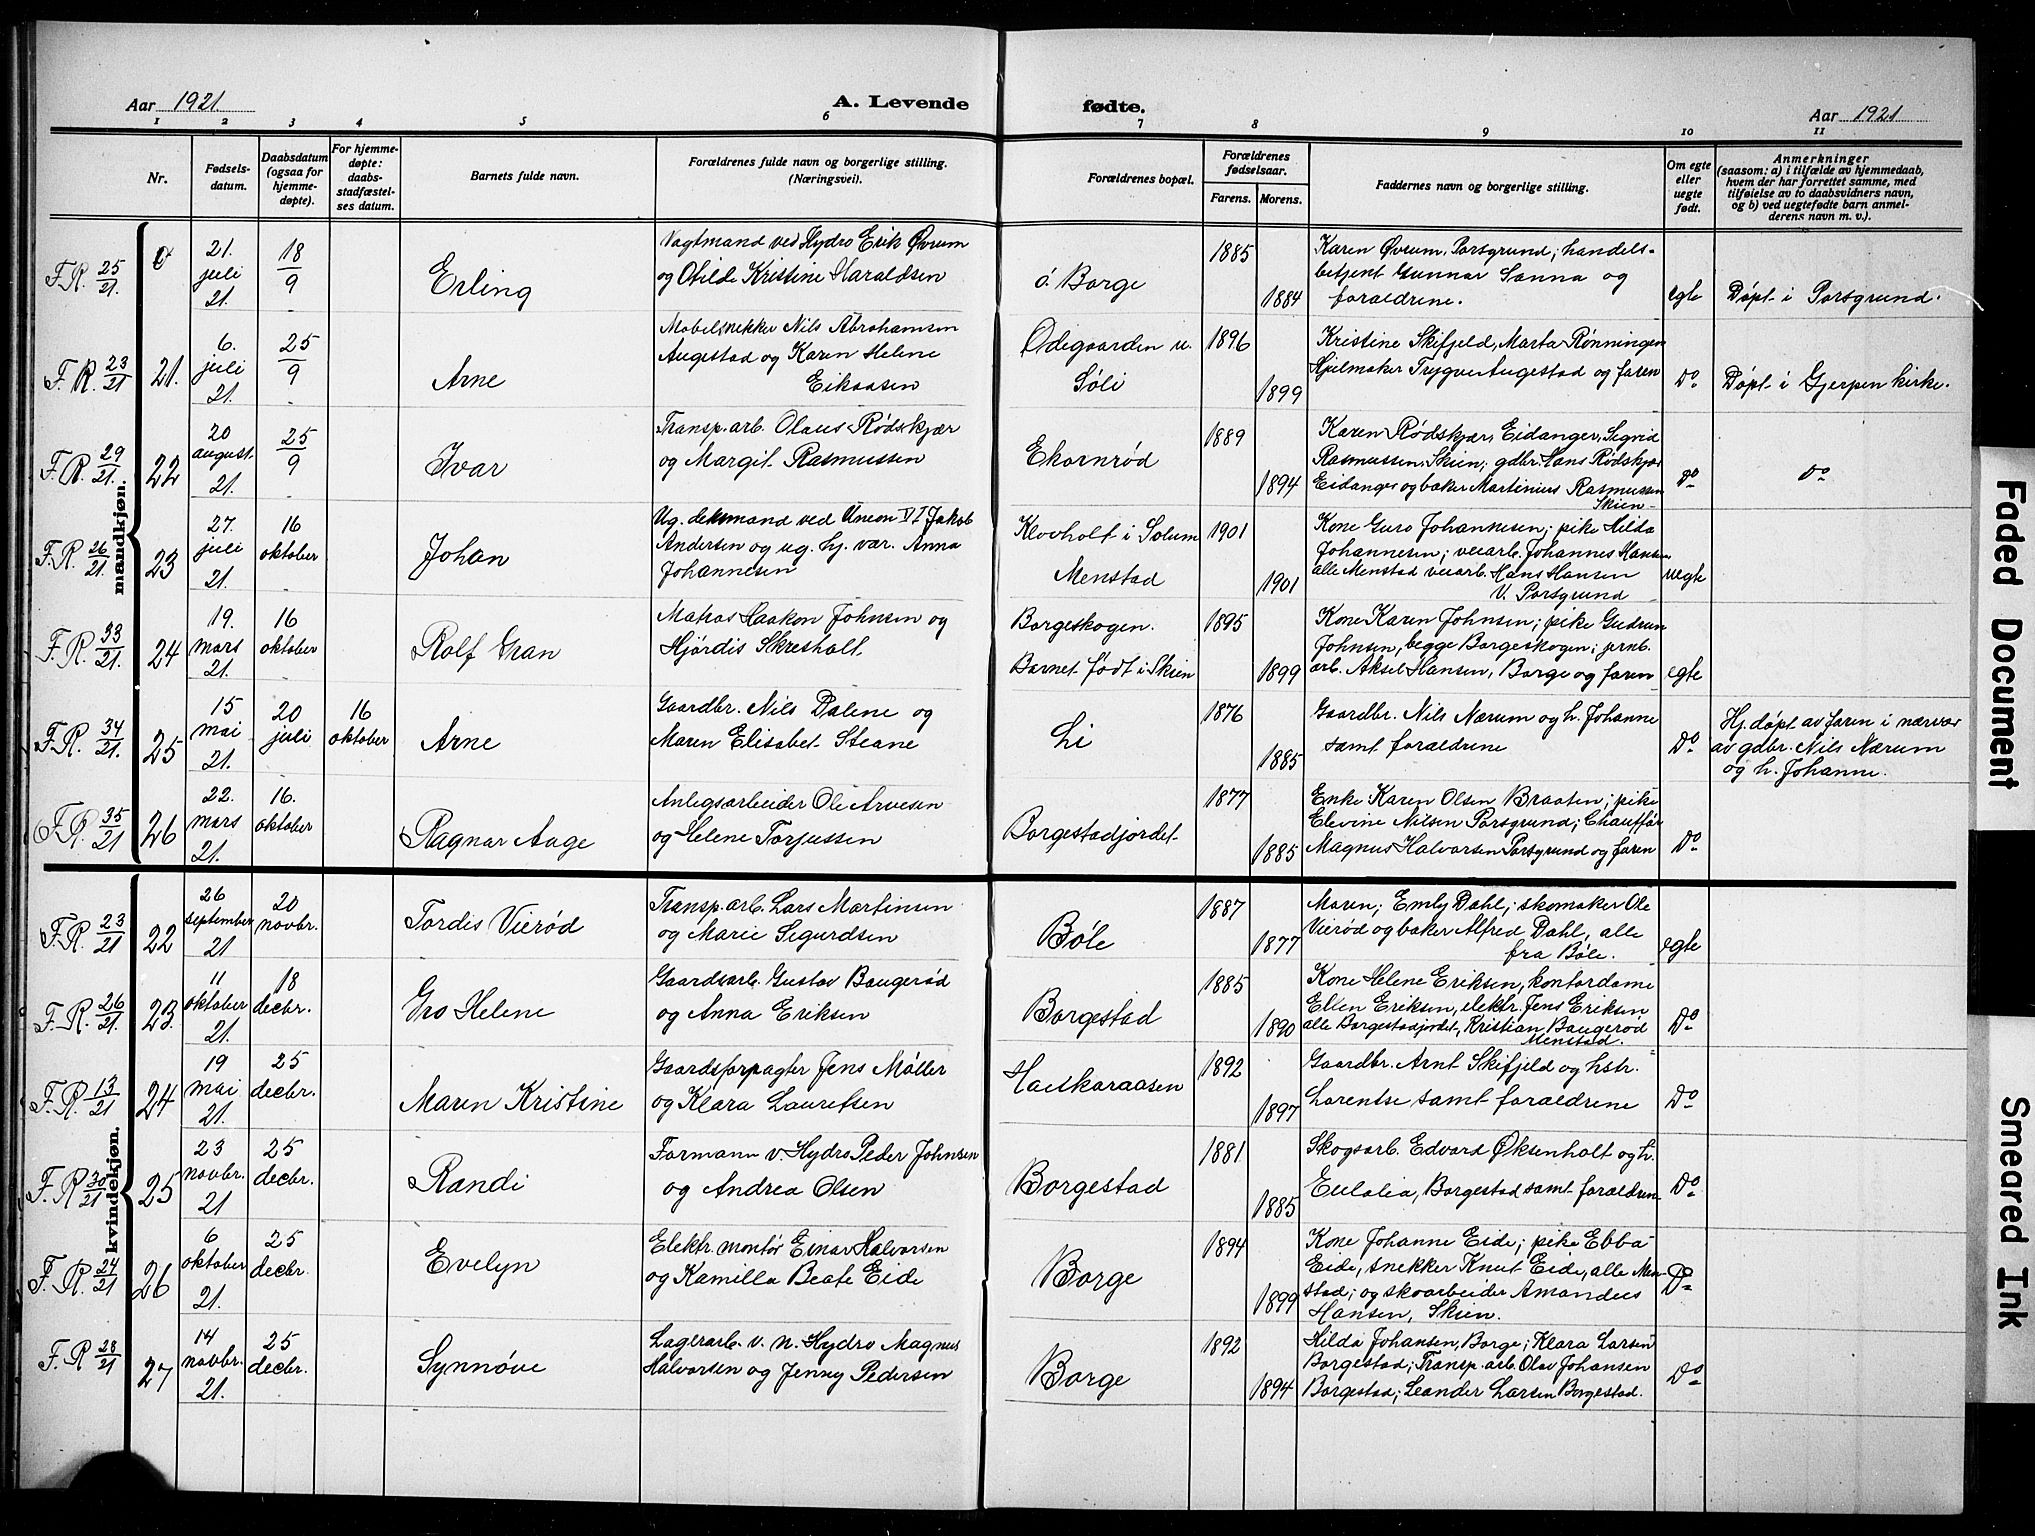 Aar 1921.
A. Levende fødte.
Aar 1921
1 2 3 4 5 6 7 8 9 10 11
Nr.
Fødsels-
datum.
Daabsdatum
(ogsaa for
hjemme-
døpte).
For hjemme-
døpte:
daabs-
stadfæstel-
ses datum.
Barnets fulde navn.
Forældrenes fulde navn og borgerlige stilling.
(Næringsvei).
Forældrenes bopæl.
Forældrenes
fødselsaar.
Farens. Morens.
Faddernes navn og borgerlige stilling.
Om egte
eller
uegte
født.
Anmerkninger
(saasom: a) i tilfælde av hjemmedaab,
hvem der har forrettet samme, med
tilføielse av to daabsvidners navn,
og b) ved uegtefødte barn anmel-
derens navn m. v.).
mandkjøn.
F.R. 25/21.
21.
juli
21.
18/9
Erling
Vagtmand ved Hydro Erik Øvrum
og Otilde Kristine Haraldsen
ö. Borge
1885
1884
Karen Øvrum, Porsgrund; handels-
betjent Gunnar Sanna og
forældrene.
egte
Døpt i Porsgrund.
F.R. 23/21
21.
6.
juli
21.
25/9
Arne
Møbelsnekker Nils Abrahamsen
Augestad og Karen Helene
Eikaasen
Ødegaarden u.
Søli
1896
1899
Kristine Skifjeld, Marta Rønningen
Hjulmaker Trygve Augestad og faren
Do
Døpt i Gjerpen kirke.
F.R. 29/21.
22
20
august
21.
25/9
Ivar
Transp. arb. Olaus Rødskjær
og Margit Rasmussen
Ekornrød
1889
1894
Karen Rødskjær, Eidanger, Sigvid
Rasmussen, Skien; gdbr. Hans Rødskjær
Eidanger og baker Martinius Rasmussen
Skien
Do
Do
F.R. 26/21.
23
27.
juli
21.
16
oktober
Johan
Ug. deksmand ved Union VI Jakob
Andersen og ug. hj. vær. Anna
Johannesen
Klovholt i Solum
Menstad
1901
1901
Kone Guro Johannesen; pike Hilda
Johannesen; veiarb. Johannes Hansen
alle Menstad veiarb. Hans Hansen
V. Porsgrund
uegte
F.R. 33/21.
24
19.
mars
21.
16
oktober
Rolf Gran
Matros Haakon Johnsen og
Hjördis Skresholt.
Borgeskogen.
Barnet født i Skien
1895
1899
Kone Karen Johnsen; pike Gudrun
Johnsen, begge Borgeskogen; jernb.
arb. Aksel Hansen, Borge og faren
egte
F.R. 34/21.
25
15
mai
21.
20
juli
16
oktober
Arne
Gaardbr. Nils Dalene og
Maren Elisabet Steane
Li
1876
1885
Gaardbr. Nils Nærum og h. Johanne
samt forældrene
Do
Hj. døpt av faren i nærvær
av gdbr. Nils Nærum
og h. Johanne.
F.R. 35/21
26
22.
mars
21.
16.
oktober
Ragnar Aage
Anlegsarbeider Ole Arvesen
og Helene Torjussen
Borgestadjordet
1877
1885
Enke Karen Olsen Braaten; pike
Elevine Nilsen Porsgrund; Chauffør
Magnus Halvorsen Porsgrund og faren
Do
kvindekjøn.
F.R. 23/21
22
26
september
21
20
novbr.
Tordis Vierød
Transp. arb. Lars Martinsen
og Marie Sigurdsen
Bøle
1887
1877
Maren; Emly Dahl; skomaker Ole
Vierød og baker Alfred Dahl, alle
fra Bøle.
egte
F.R. 26/21.
23.
11
oktober
21.
18
decbr.
Gro Helene
Gaardsarb. Gustav Baugerød
og Anna Eriksen
Borgestad
1885
1890
Kone Helene Eriksen, kontordame
Ellen Eriksen, elektr. Jens Eriksen
alle Borgestadjordet, Kristian Baugerød
Menstad.
Do
F.R. 13/21
24
19
mai
21.
25
decbr.
Maren Kristine
Gaardsforpagter Jens Møller
og Klara Lauretsen
Haukaraasen
1892
1897
Gaardbr. Arnt Skifjeld og hstr.
Lorentse samt forældrene
Do
F.R. 30/21
25
23
novbr.
21
25
decbr.
Randi
Formann v. Hydro Peder Johnsen
og Andrea Olsen
Borgestad
1881
1885
Skogsarb. Edvard Øksenholt og h.
Eulalia, Borgestad samt forældren
Do
F.R. 24/21
26
6
oktober
21.
25
decbr.
Evelyn
Elektr. montør Einar Halvorsen
og Kamilla Beate Eide
Borge
1894
1899
Kone Johanne Eide; pike Ebba
Eide, snekker Knut Eide, alle Men-
stad; og skoarbeider Amandus
Hansen, Skien.
Do
F.R. 28/21
27
14
novbr.
21.
25
decbr.
Synnøve
Lagerarb. v. N. Hydro Magnus
Halvorsen og Jenny Pedersen
Borge
1892
1894
Hilda Johansen, Borge; Klara Larsen
Borgestad; Transp. arb. Olav Johansen
Borgestad; Leander Larsen Borgestad.
Do
Faded Document
Smeared Ink